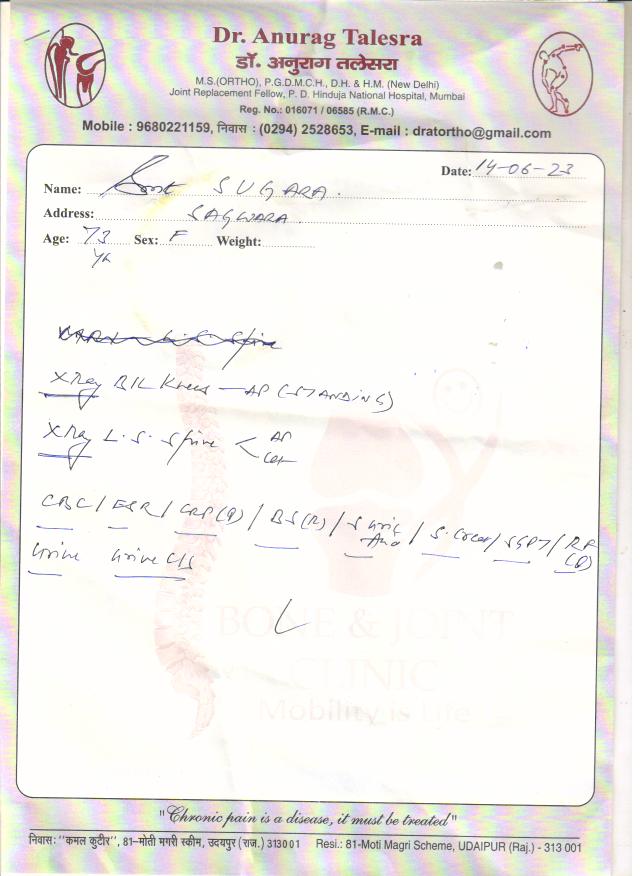 Dr. Anurag Talesra
डॉ. अनुराग तलेसरा
M.S.(ORTHO), P.G.D.M.C.H., D.H. & H.M. (New Delhi)
Joint Replacement Fellow, P. D. Hinduja National Hospital, Mumbai
Reg. No.: 016071 / 06585 (R.M.C.)
Mobile : 9680221159, निवास : (0294) 2528653, E-mail : dratortho@gmail.com
Date: 14-06-23
Name: Smt SUGARA.
Address: SAGWARA.
Age: 73 yr Sex: F Weight:
XRay B/L Knees - AP (STANDING)
XRay L.S. Spine < AP
Lat
CBC / ESR / CRP(Q) / BS(R) / S Uric Acid / S. Creat / SGPT / RF (Q)
Urine Urine C/S
BONE & JOINT
CLINIC
Mobility is Life
"Chronic pain is a disease, it must be treated"
निवास: "कमल कुटीर", 81-मोती मगरी स्कीम, उदयपुर (राज.) 313001 Resi.: 81-Moti Magri Scheme, UDAIPUR (Raj.) - 313 001